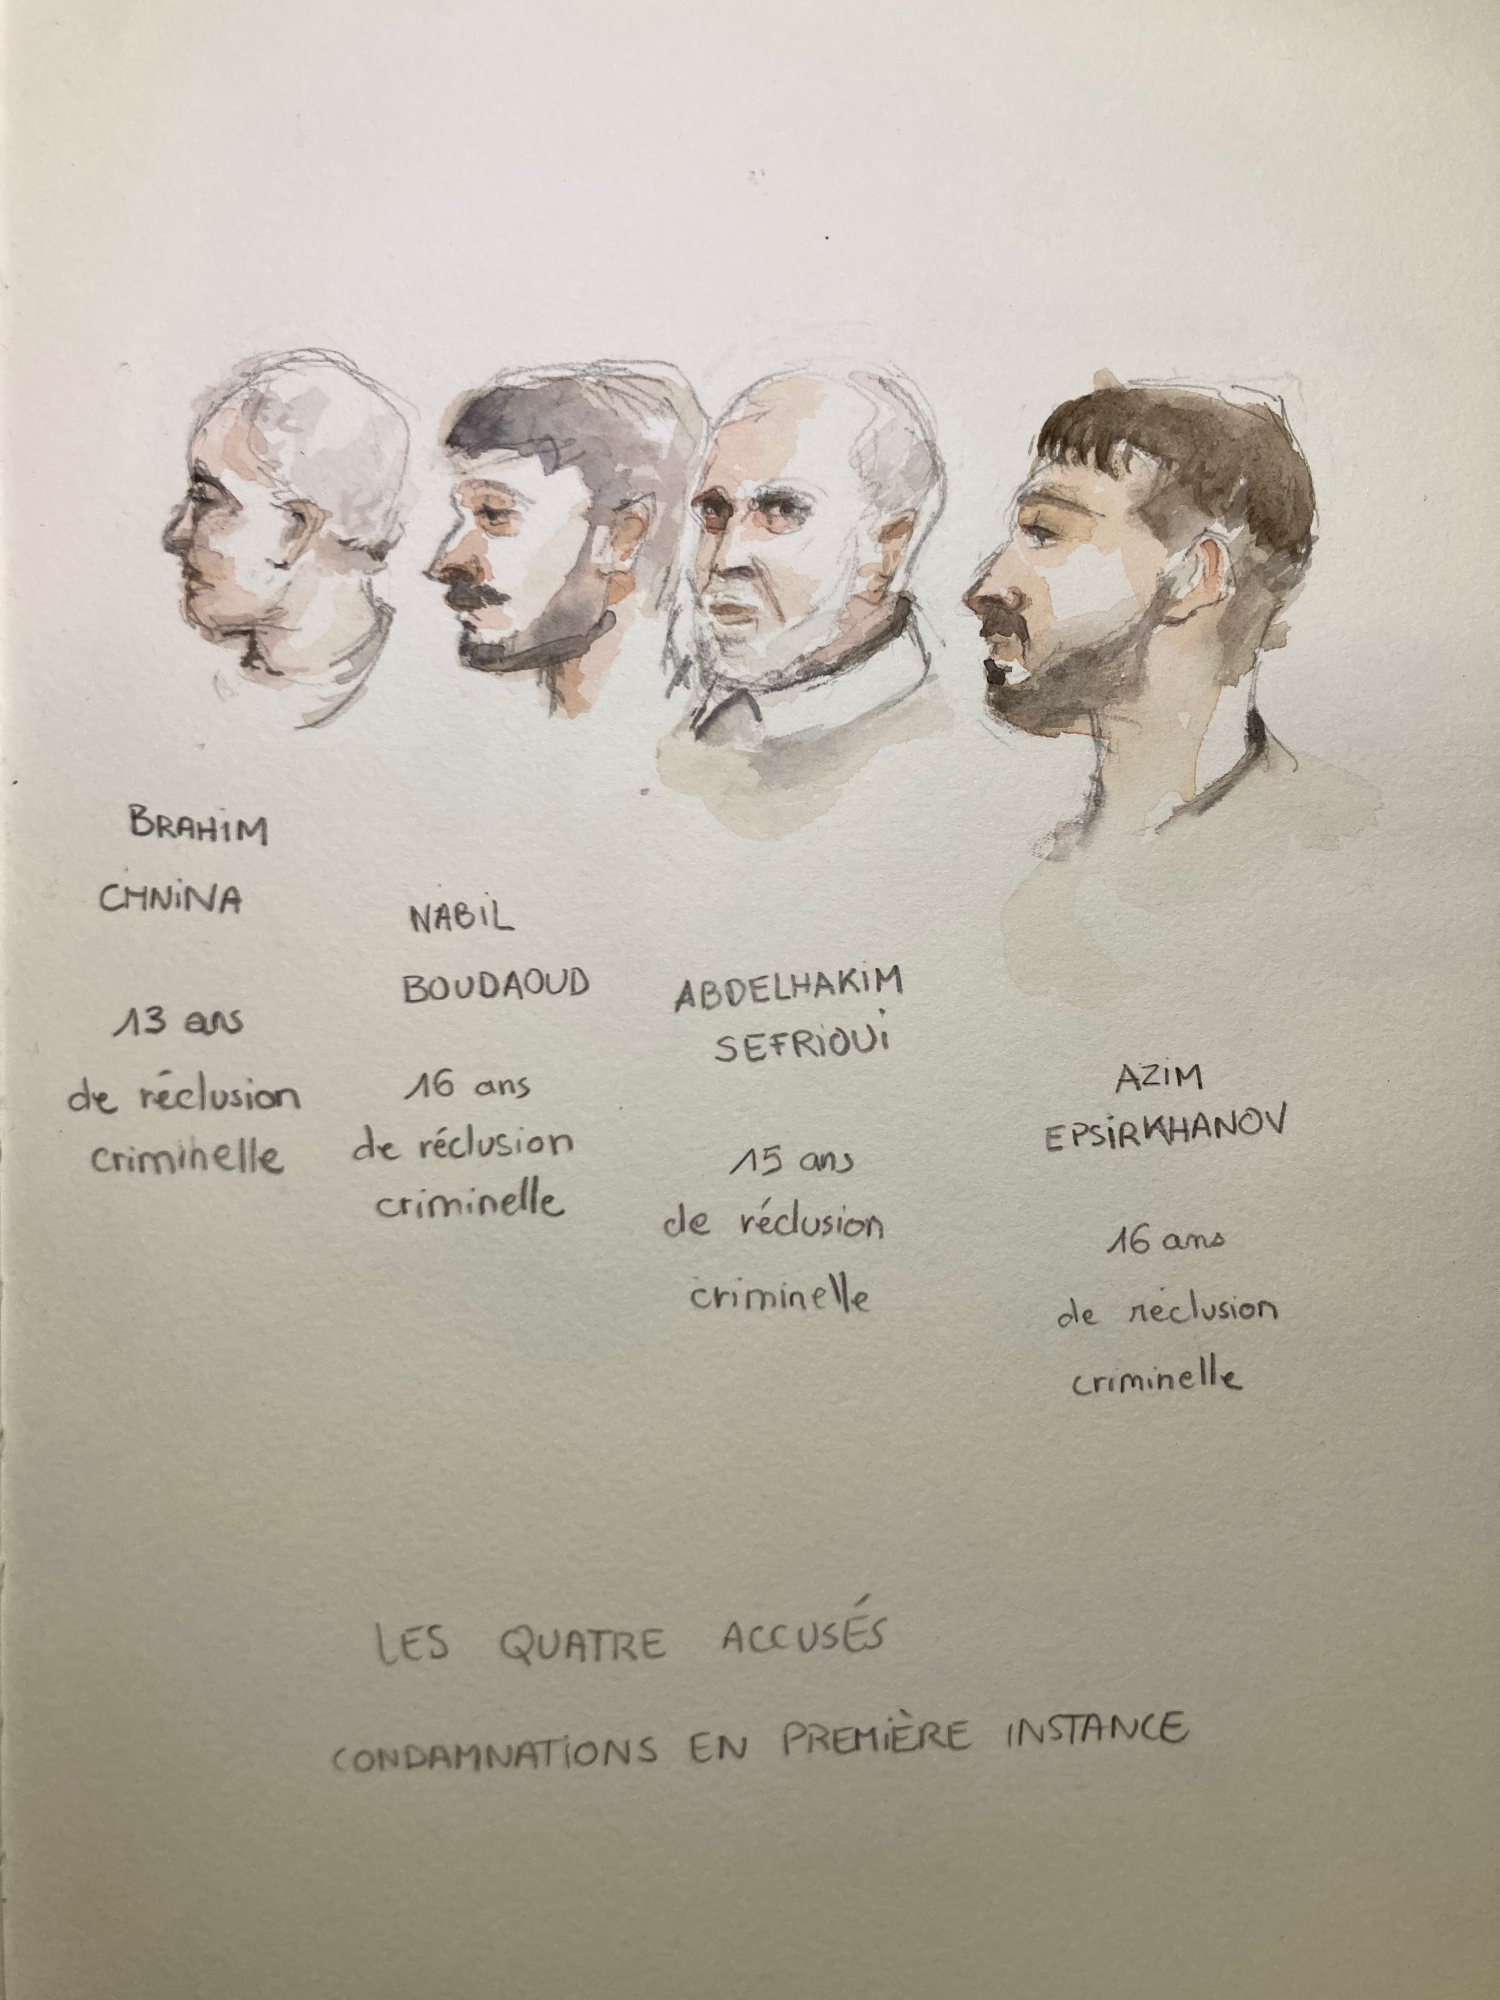 BRAHIM
CHNINA
13 ans
de réclusion
criminelle
NABIL
BOUDAOUD
16 ans
de réclusion
criminelle
ABDELHAKIM
SEFRIOUI
15 ans
de réclusion
criminelle
AZIM
EPSIRKHANOV
16 ans
de réclusion
criminelle
LES QUATRE ACCUSÉS
CONDAMNATIONS EN PREMIÈRE INSTANCE